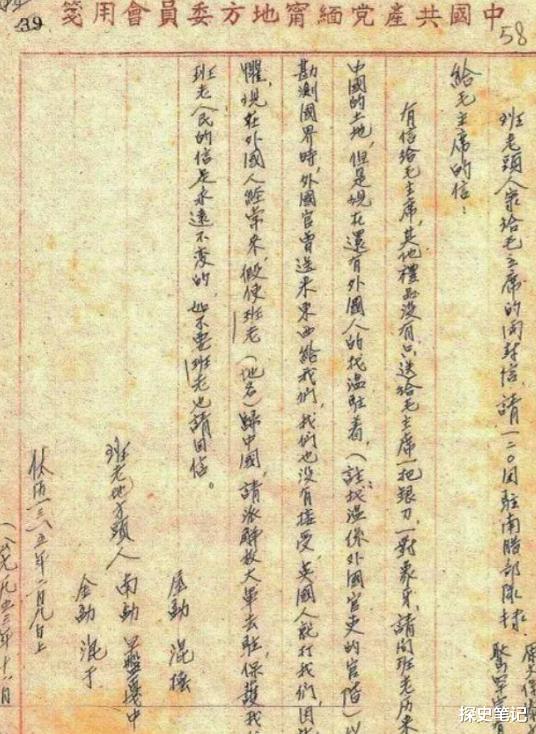 39
58
中國共產党緬甯地方委員會用箋
班老頭人寄給毛主席的兩封信,請一二〇团駐南腊部隊轉
給毛主席的信:
有信給毛主席,其他禮物没有只送給毛主席一把銀刀,一對象牙,請問班老历来
中國的土地,但是現在還有外國人的找温駐着,(註:找温係外國官吏的官階)以
勘測國界時,外國官曾送来東西給我們,我們也没有接受,英國人就打我們,因
懼,現在外國人經常来,假使班老(地名)歸中國,請派解放大軍去駐,保護我
班老人民的信是永遠不变的,如不要班老也請回信。
屋勐 混
班老地方頭人 南勐
金勐 混
年一月九日上
一九五三年十一月
探史笔记